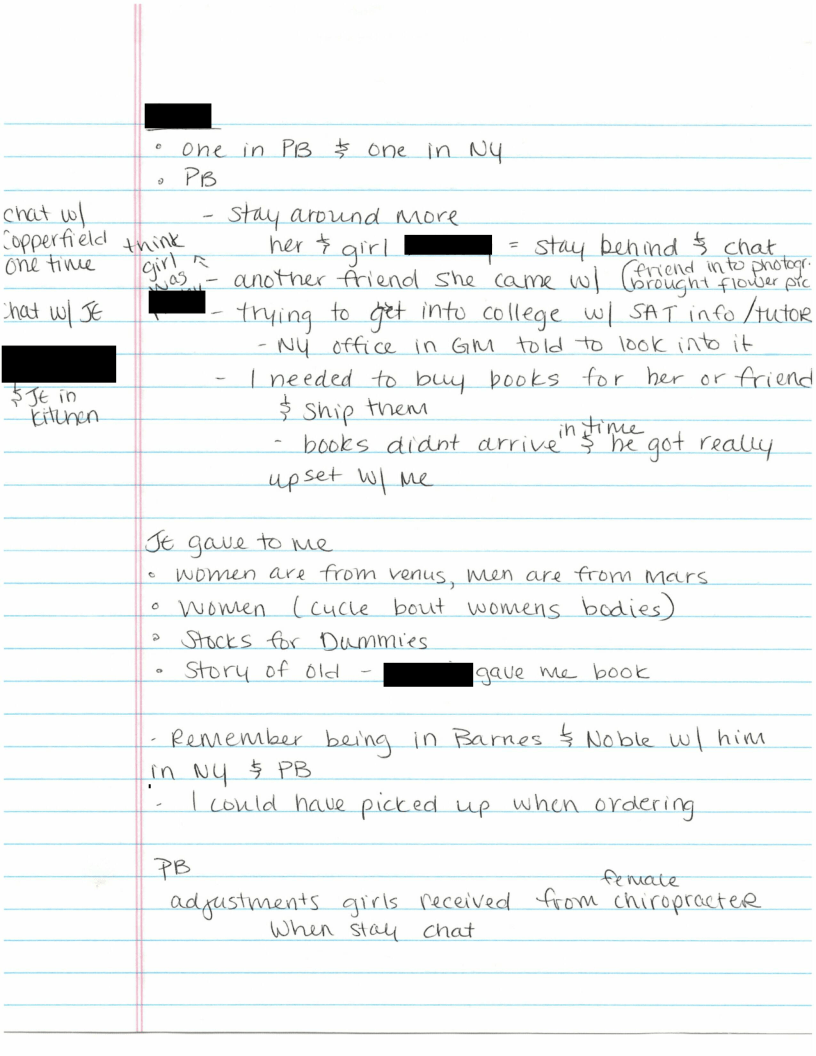 • one in PB & one in NY
• PB
chat w/
Copperfield
one time
- stay around more
think
girl
was
her & girl = stay behind & chat
- another friend she came w/ (friend into photogr.
brought flower pic
chat w/ JE
- trying to get into college w/ SAT info/tutor
- NY office in GM told to look into it
& JE in
kitchen
- I needed to buy books for her or friend
& ship them
- books didnt arrive in time & he got really
upset w/ me
JE gave to me
• women are from venus, men are from mars
• Women (cycle bout womens bodies)
• Stocks for Dummies
• Story of Old - gave me book
- Remember being in Barnes & Noble w/ him
in NY & PB
- I could have picked up when ordering
PB
adjustments girls received from female chiropracter
when stay chat